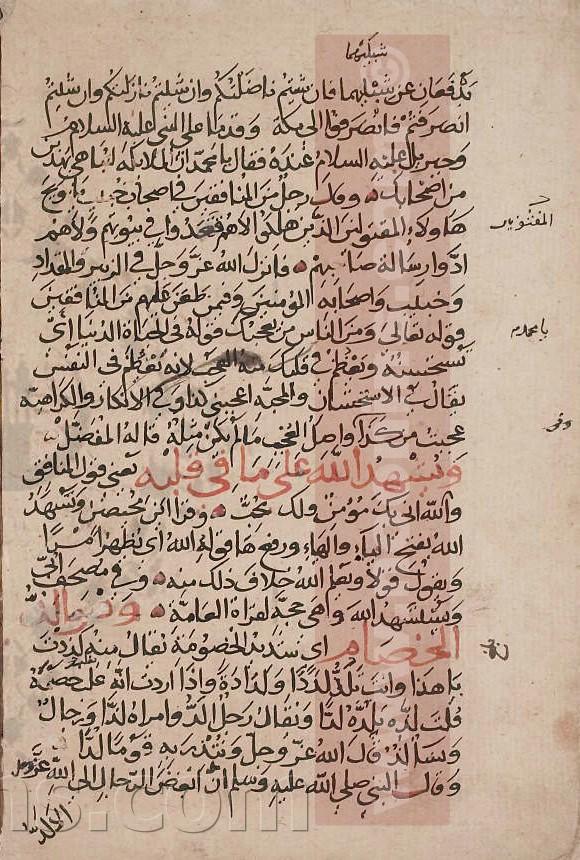 شبليهما
يدفعان عن شبليهما فان شئتم ناضلتكم وان شئتم نازلتكم وان شئتم
انصرفتم فانصرفوا الى مكة وقدما على النبي عليه السلام
وجبريل عليه السلام عنده فقال يا محمد ان الملائكة لتباهي بهذين
من اصحابك وقال رجل من المنافقين في اصحاب خبيب يا ويح
المفتونين
هاولاء المقتولين الذين هلكوا لاهم قعدوا في بيوتهم ولاهم
ادوا رسالة صاحبهم فانزل الله عز وجل في الزبير والمقداد
وخبيب واصحابه المؤمنين وفيمن طعن عليهم من المنافقين
يا محمد
قوله تعالى ومن الناس من يعجبك قوله في الحياة الدنيا أي
تستحسنه ويعظم في قلبك منه العجب لانه يعظم في النفس
يقال في الاستحسان والمحبة اعجبني كذا وفي الانكار والكراهية
عجبت من كذا واصل العجب ما لم يكن مثله قاله المفضل
ويشهد الله على ما في قلبه يعني قول المنافق
والله اني بك مؤمن ولك محب وقرا ابن محيصن ويشهد
الله بفتح الياء والهاء ورفع هاء قوله الله اي يظهر امرا
ويقول قولا ويعلم الله خلاف ذلك منه وفي مصحف ابي
ويستشهد الله وهي حجة لقراة العامة وهو الد
الخصام اي شديد الخصومة يقال منه لددت
يا هذا وانت تلد لددا ولدادة واذا اردت انه غلب خصمه
قلت لده يلده لدا ويقال رجل الد وامراة لدا ورجال
ونسا لد قال الله عز وجل وتنذر به قوما لدا
وقال النبي صلى الله عليه وسلم ان ابغض الرجال الى الله عز وجل
الالد